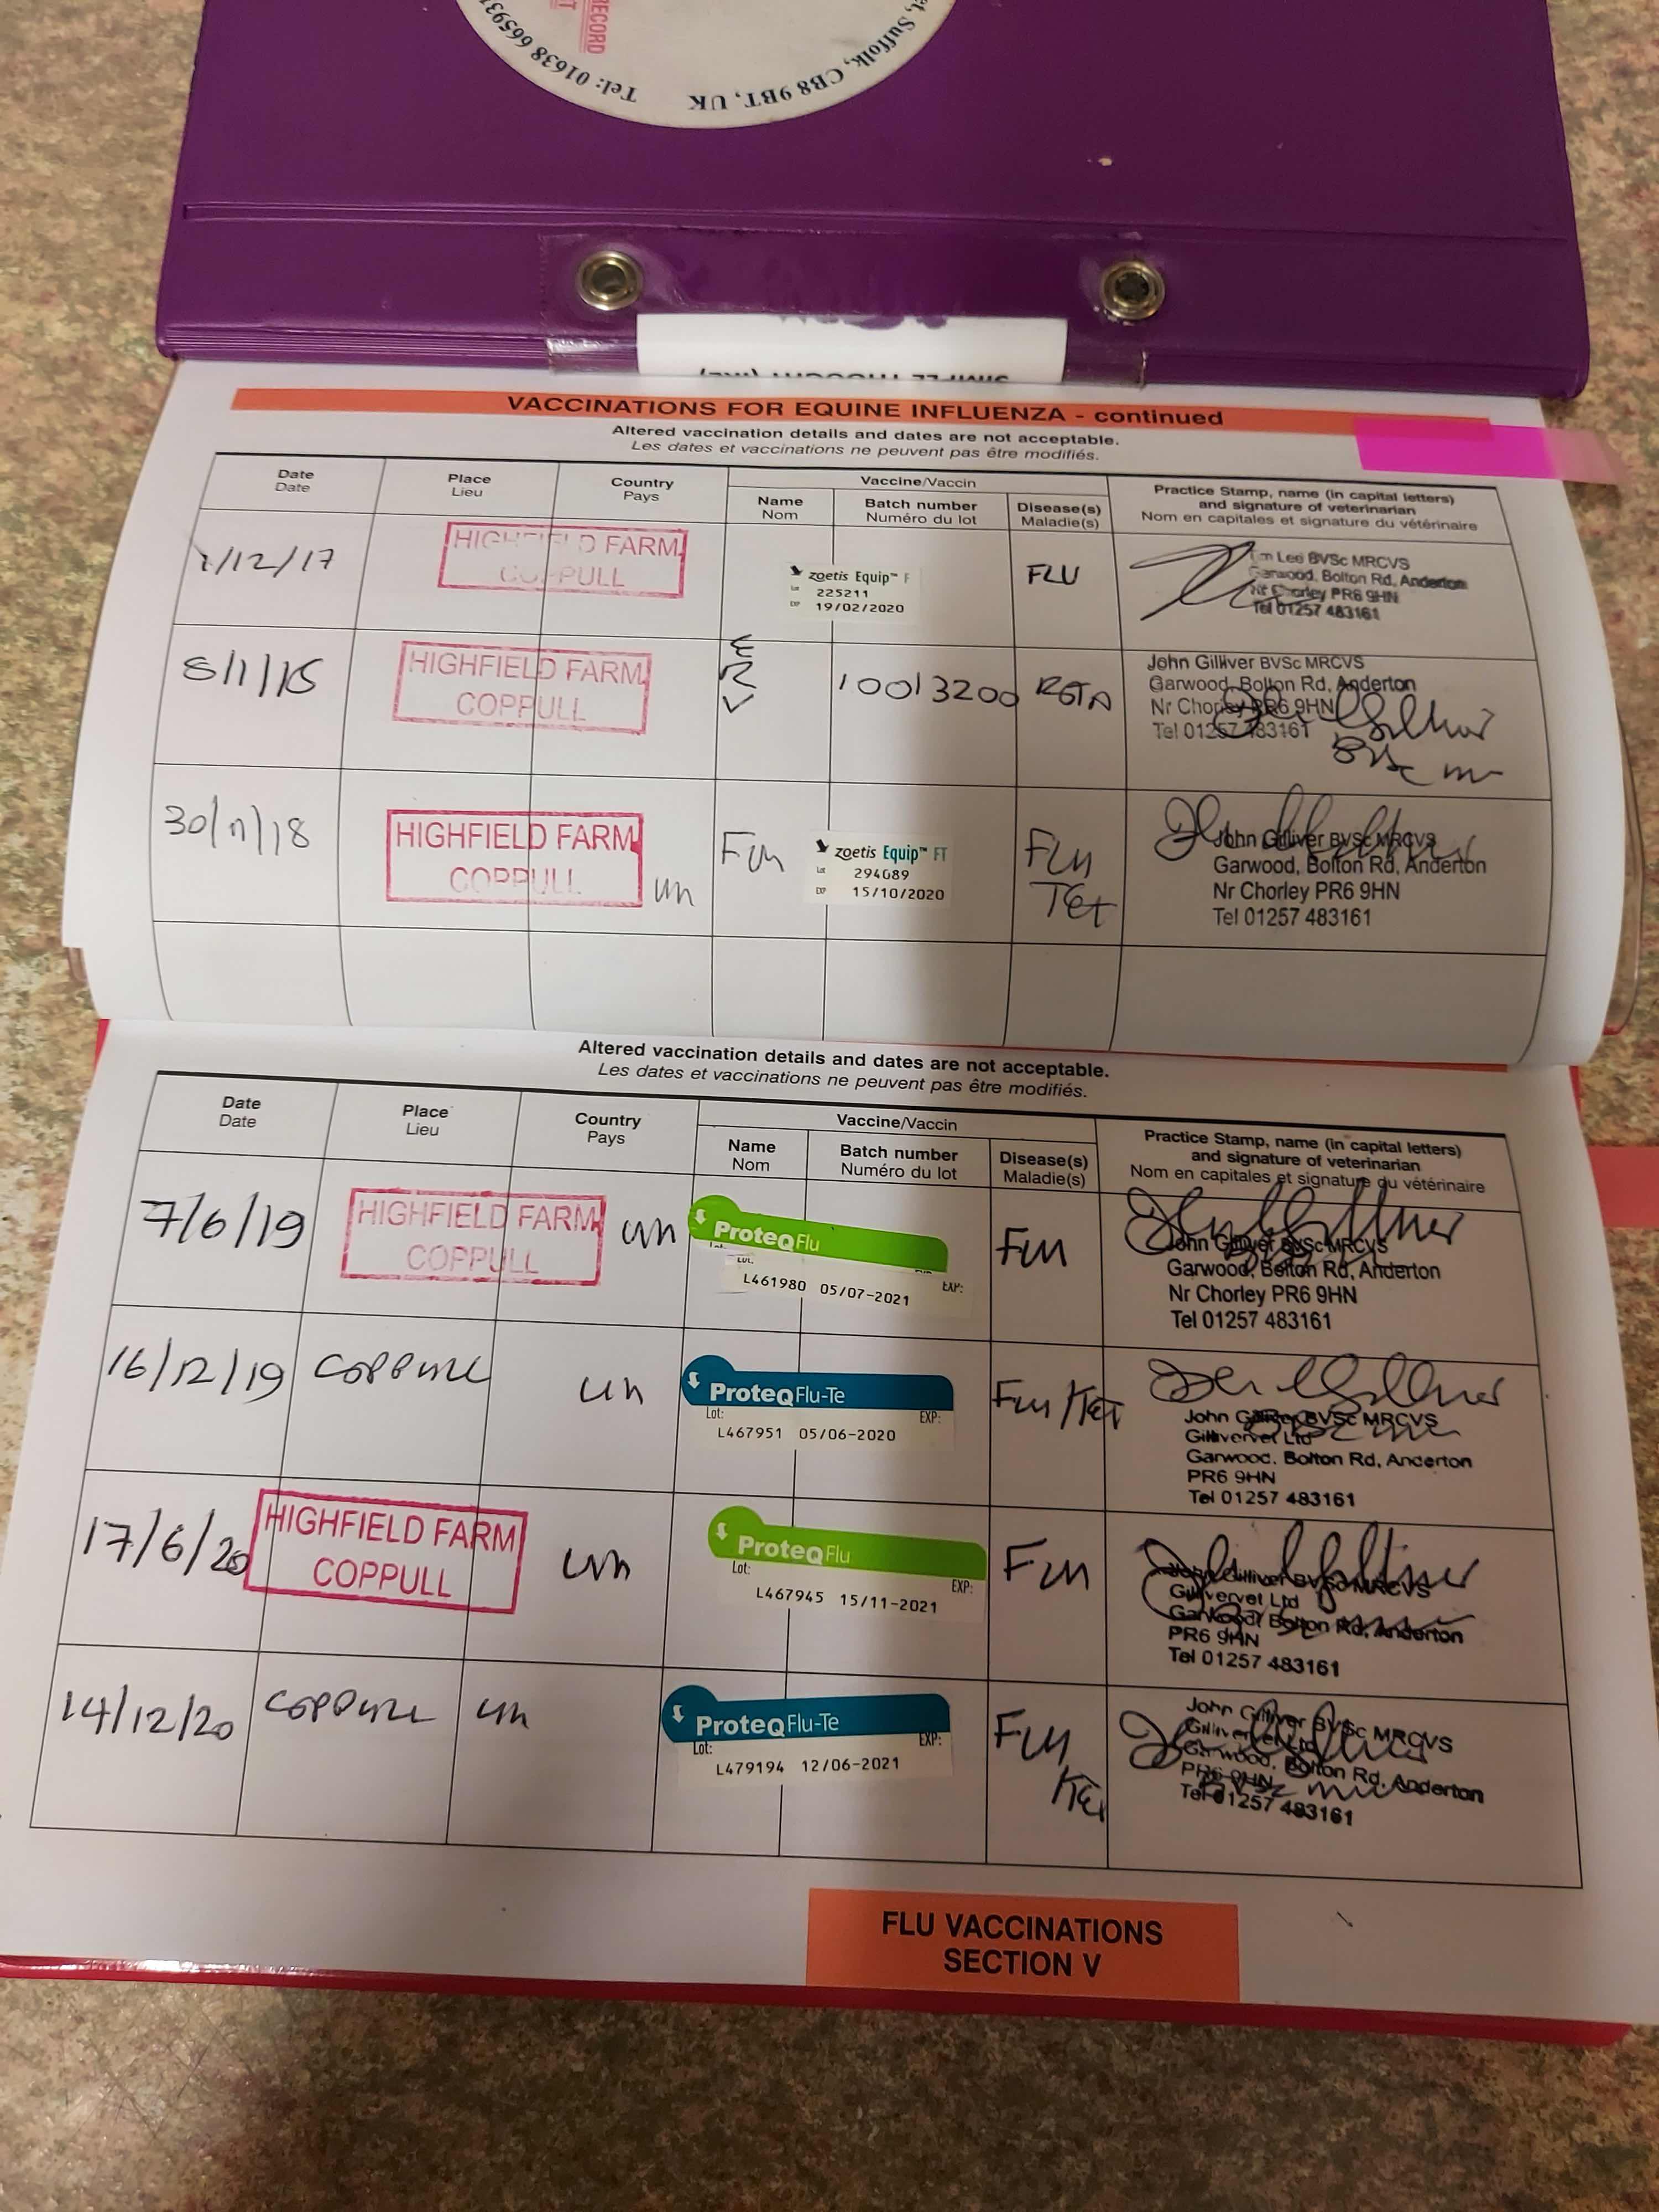 RECORD
Tel: 01638 66593
et, Suffolk, CB8 9BT, UK
VACCINATIONS FOR EQUINE INFLUENZA - continued
Altered vaccination details and dates are not acceptable.
Les dates et vaccinations ne peuvent pas être modifiés.
Date
Date
Place
Lieu
Country
Pays
Vaccine/Vaccin
Name
Nom
Batch number
Numéro du lot
Disease(s)
Maladie(s)
Practice Stamp, name (in capital letters)
and signature of veterinarian
Nom en capitales et signature du vétérinaire
1/12/17
HIGHFIELD FARM
COPPULL
zoetis Equip™ F
Lot 225211
EXP 19/02/2020
FLU
Lee BVSc MRCVS
Garwood, Bolton Rd, Anderton
Nr Chorley PR6 9HN
Tel 01257 483161
HIGHFIELD FARM
COPPULL
10013200
John Gilliver BVSc MRCVS
Garwood, Bolton Rd, Anderton
Nr Chorley PR6 9HN
Tel 01257 483161
30/11/18
HIGHFIELD FARM
COPPULL
UK
Flu
zoetis Equip™ FT
Lot 294689
EXP 15/10/2020
Flu
Tet
John Gilliver BVSc MRCVS
Garwood, Bolton Rd, Anderton
Nr Chorley PR6 9HN
Tel 01257 483161
Altered vaccination details and dates are not acceptable.
Les dates et vaccinations ne peuvent pas être modifiés.
Date
Date
Place
Lieu
Country
Pays
Vaccine/Vaccin
Name
Nom
Batch number
Numéro du lot
Disease(s)
Maladie(s)
Practice Stamp, name (in capital letters)
and signature of veterinarian
Nom en capitales et signature du vétérinaire
7/6/19
HIGHFIELD FARM
COPPULL
UK
ProteqFlu
EXP:
L461980 05/07-2021
Flu
John Gilliver BVSc MRCVS
Garwood, Bolton Rd, Anderton
Nr Chorley PR6 9HN
Tel 01257 483161
16/12/19
COPPULL
UK
ProteqFlu-Te
Lot: EXP:
L467951 05/06-2020
Flu/Tet
John Gilliver BVSc MRCVS
Gillivervet Ltd
Garwood, Bolton Rd, Anderton
PR6 9HN
Tel 01257 483161
17/6/20
HIGHFIELD FARM
COPPULL
UK
ProteqFlu
Lot: EXP:
L467945 15/11-2021
Flu
John Gilliver BVSc MRCVS
Gillivervet Ltd
Garwood, Bolton Rd, Anderton
PR6 9HN
Tel 01257 483161
14/12/20
COPPULL
UK
ProteqFlu-Te
Lot: EXP:
L479194 12/06-2021
Flu
Tet
John Gilliver BVSc MRCVS
Gillivervet Ltd
Garwood, Bolton Rd, Anderton
PR6 9HN
Tel 01257 483161
FLU VACCINATIONS
SECTION V